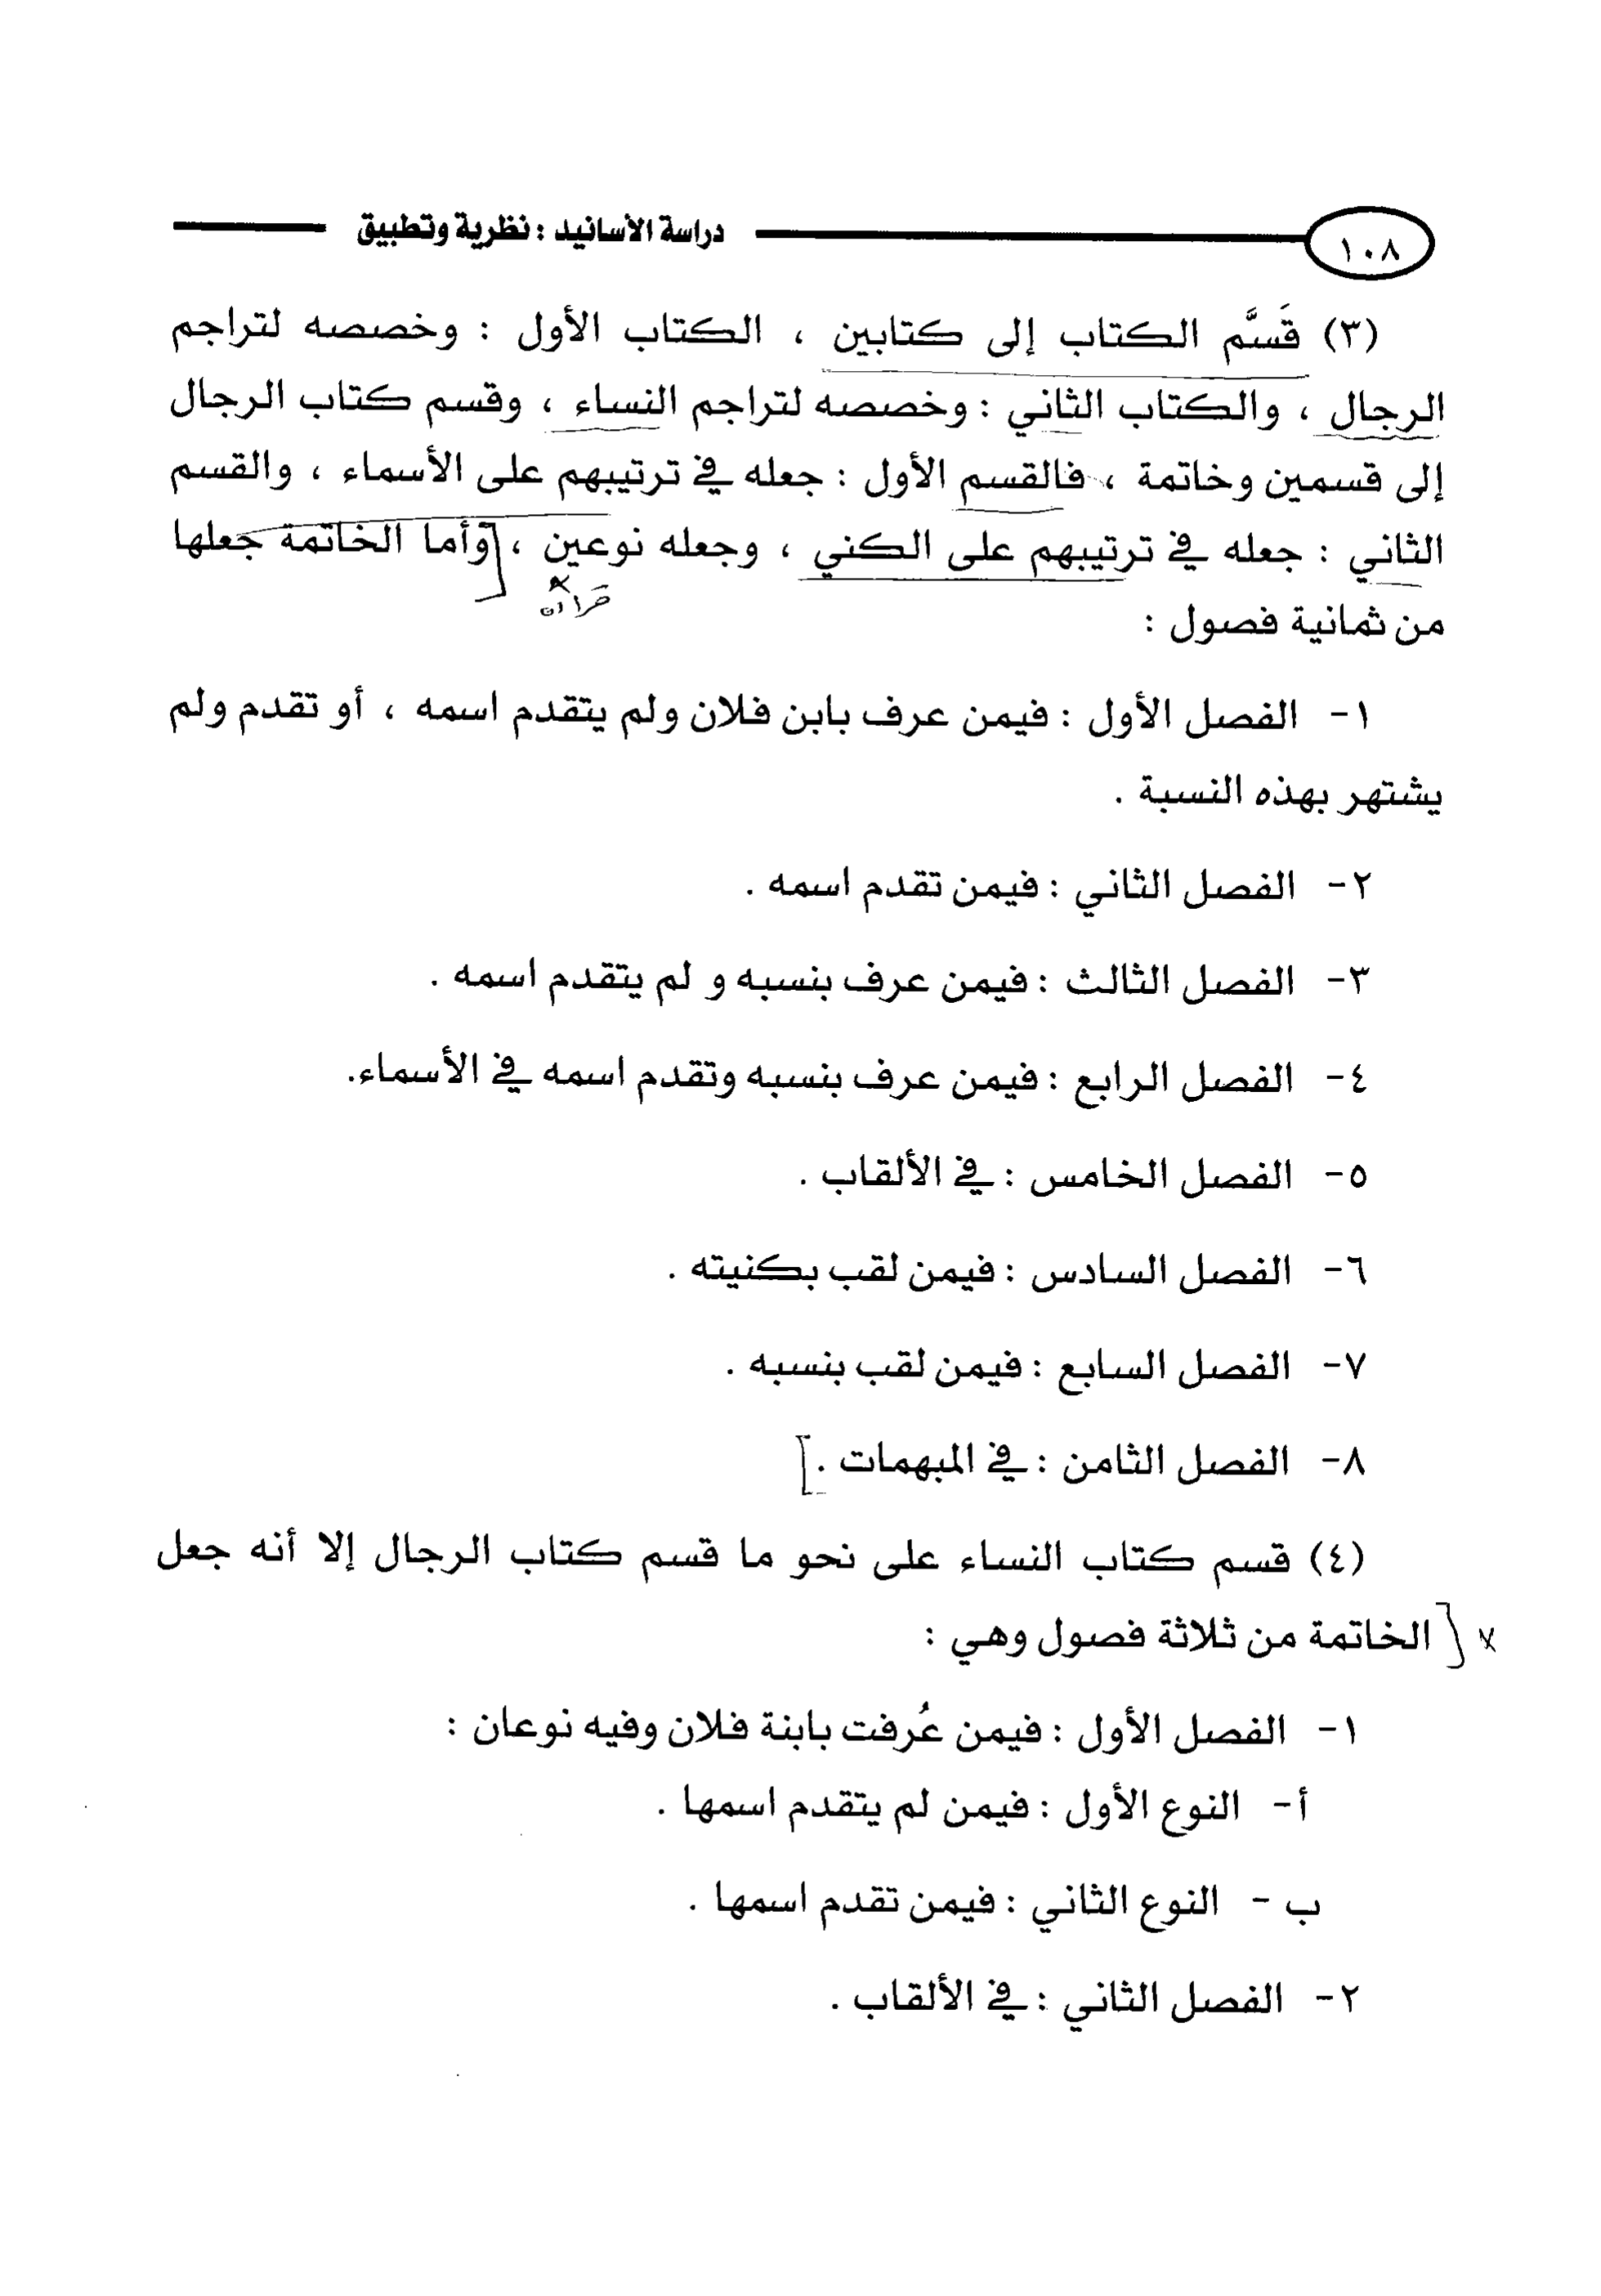 ١٠٨ دراسة الأسانيد : نظرية وتطبيق
(٣) قَسَّم الكتاب إلى كتابين ، الكتاب الأول : وخصصه لتراجم
الرجال ، والكتاب الثاني : وخصصه لتراجم النساء ، وقسم كتاب الرجال
إلى قسمين وخاتمة ، فالقسم الأول : جعله في ترتيبهم على الأسماء ، والقسم
الثاني : جعله في ترتيبهم على الكني ، وجعله نوعين ، وأما الخاتمة جعلها
من ثمانية فصول :
١- الفصل الأول : فيمن عرف بابن فلان ولم يتقدم اسمه ، أو تقدم ولم
يشتهر بهذه النسبة .
٢- الفصل الثاني : فيمن تقدم اسمه .
٣- الفصل الثالث : فيمن عرف بنسبه و لم يتقدم اسمه .
٤- الفصل الرابع : فيمن عرف بنسبه وتقدم اسمه في الأسماء.
٥- الفصل الخامس : في الألقاب .
٦- الفصل السادس : فيمن لقب بكنيته .
٧- الفصل السابع : فيمن لقب بنسبه .
٨- الفصل الثامن : في المبهمات .
(٤) قسم كتاب النساء على نحو ما قسم كتاب الرجال إلا أنه جعل
الخاتمة من ثلاثة فصول وهي :
١- الفصل الأول : فيمن عُرفت بابنة فلان وفيه نوعان :
أ- النوع الأول : فيمن لم يتقدم اسمها .
ب - النوع الثاني : فيمن تقدم اسمها .
٢- الفصل الثاني : في الألقاب .